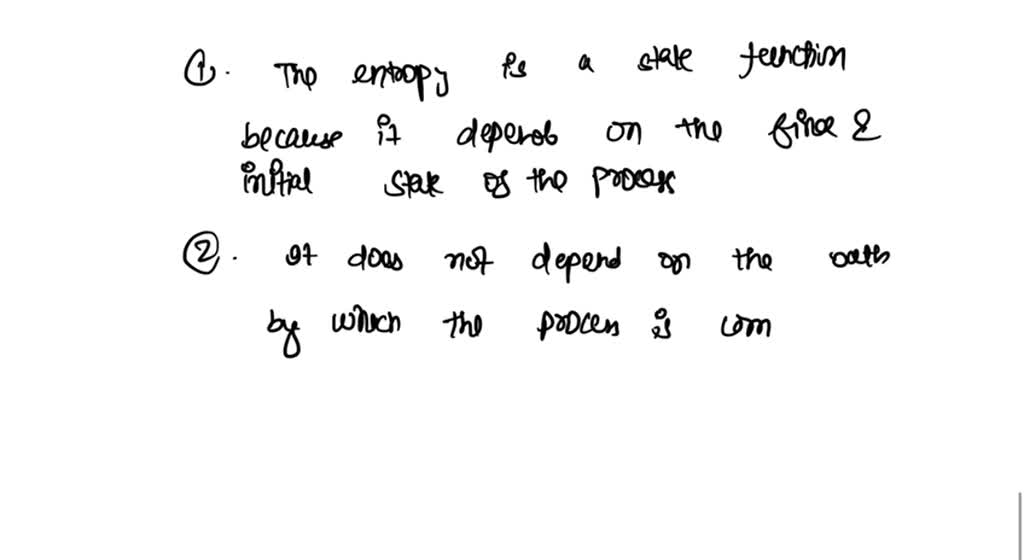 ①. The entropy is a state function
because it depends on the final &
initial state of the process
②. It does not depend on the path
by which the process is com